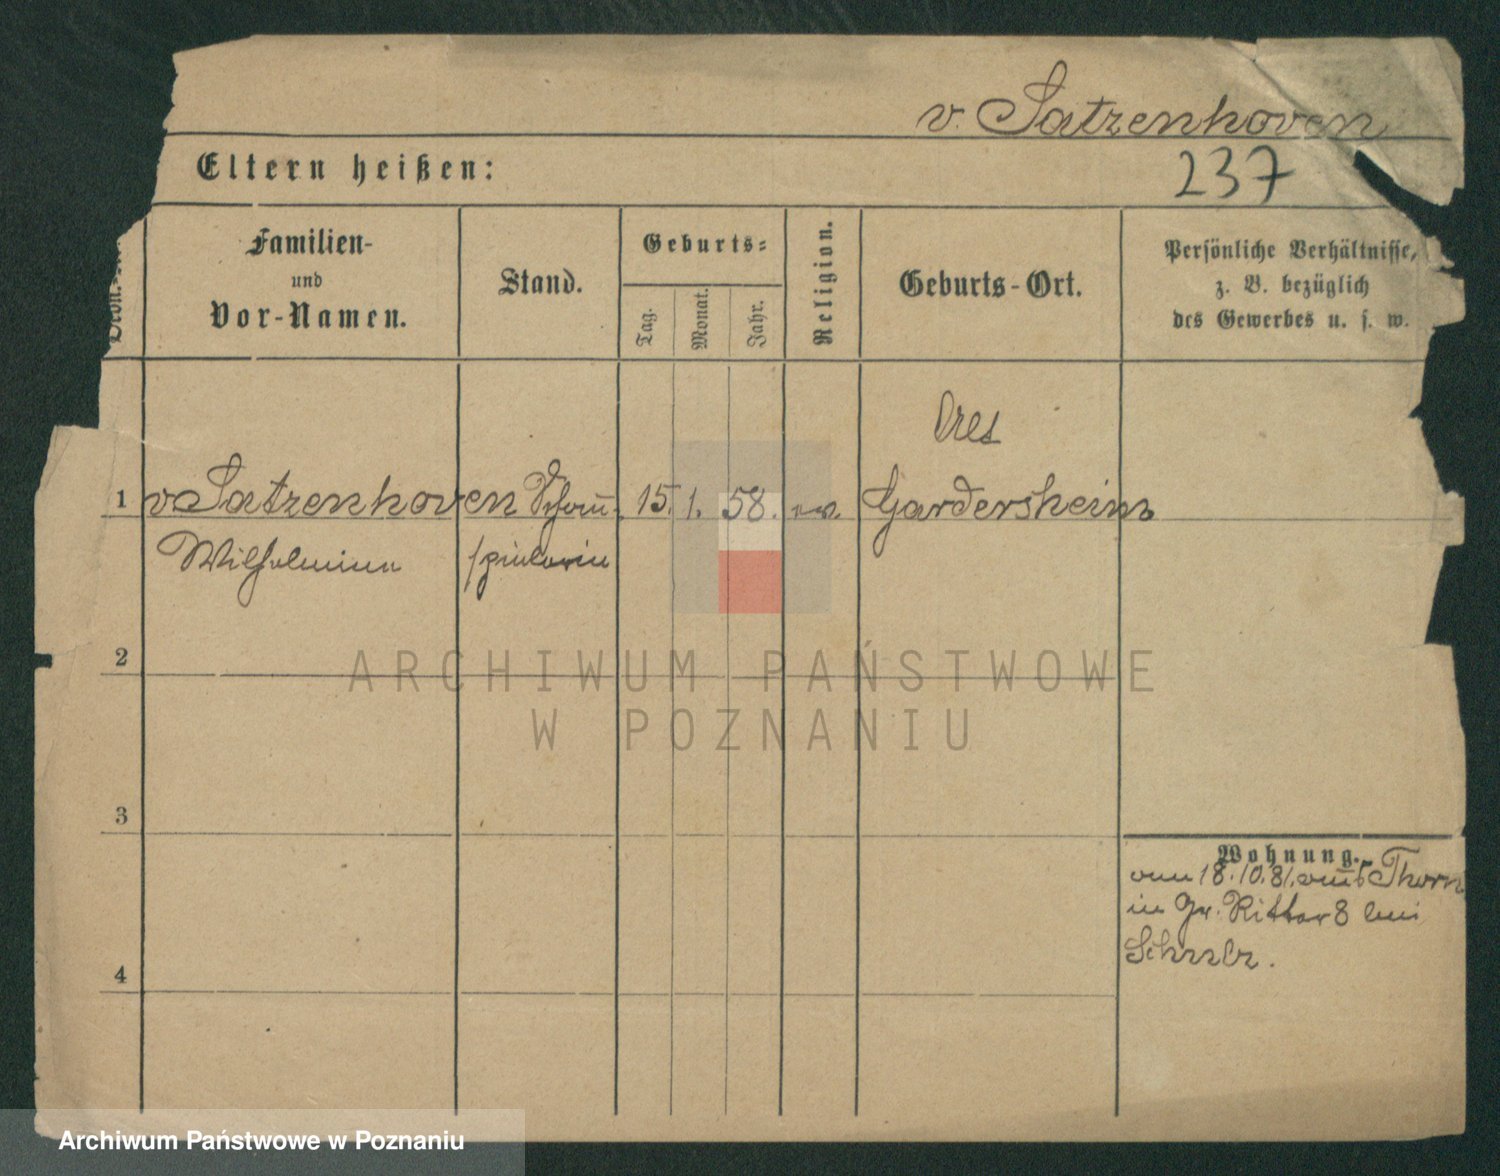 v. Satzenhoven
Eltern heißen:
237
Familien-
und
Vor-Namen.
Stand.
Geburts-
Tag.
Monat.
Jahr.
Religion.
Geburts-Ort.
Persönliche Verhältnisse,
z. B. bezüglich
des Gewerbes u. s. w.
1 v Satzenhoven Schau- 15. 1. 58. ev. Gardersheim
Wilhelmine spielerin
2
3
4
Wohnung.
vom 18.10.81. aus Thorn
in Gr. Ritter 8 bei
Schulz.
ARCHIWUM PAŃSTWOWE
W POZNANIU
Archiwum Państwowe w Poznaniu